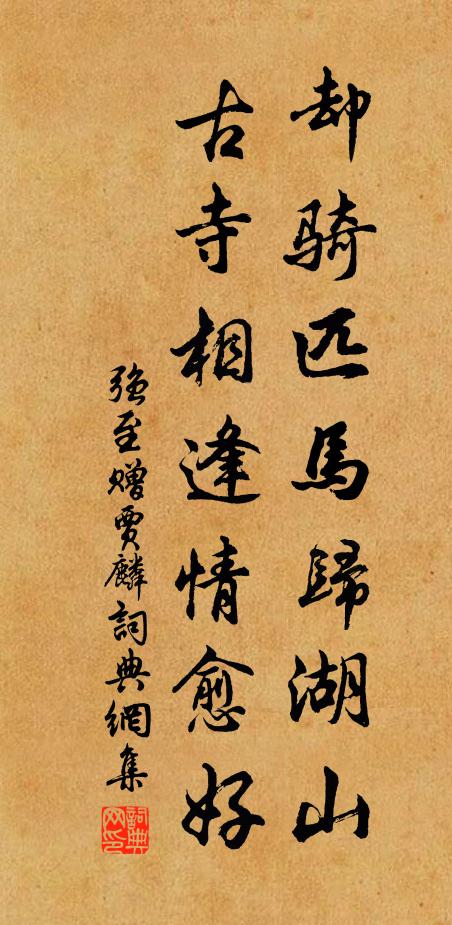 却騎匹馬歸湖山
古寺相逢情愈好
強至贈賈麟詞典網集
詞典网印